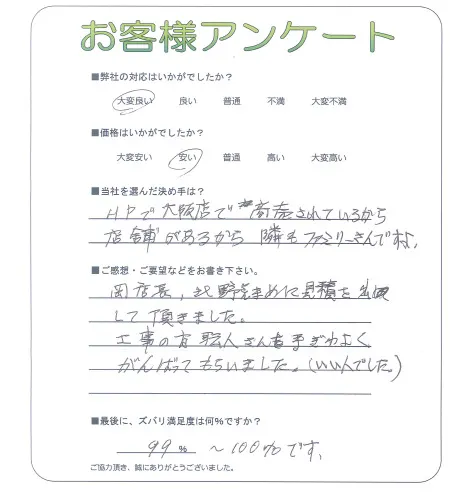 お客様アンケート
■弊社の対応はいかがでしたか？
大変良い 良い 普通 不満 大変不満
■価格はいかがでしたか？
大変安い 安い 普通 高い 大変高い
■当社を選んだ決め手は？
HPで大阪店で商売されているから
店舗があるから 隣もファミリーさんですね。
■ご感想・ご要望などをお書き下さい。
岡店長、 見積を
して頂きました。
工事の方 職人さんも手ぎわよく
がんばってもらいました。(いい人でした。)
■最後に、ズバリ満足度は何%ですか？
99% ～100%です。
ご協力頂き、誠にありがとうございました。